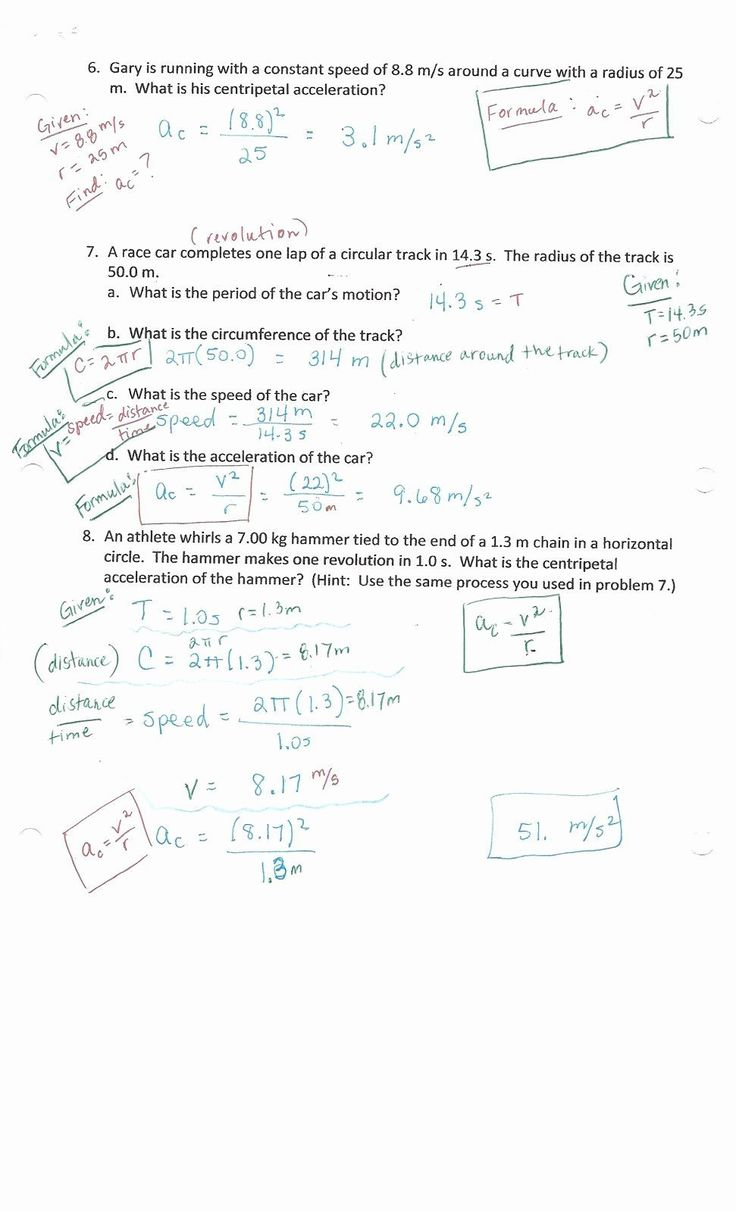 6. Gary is running with a constant speed of 8.8 m/s around a curve with a radius of 25
m. What is his centripetal acceleration?
Given:
v = 8.8 m/s
r = 25 m
Find: ac = ?
ac = (8.8)² / 25 = 3.1 m/s²
Formula: ac = v² / r
(revolution)
7. A race car completes one lap of a circular track in 14.3 s. The radius of the track is
50.0 m.
a. What is the period of the car's motion? 14.3 s = T
Given:
T = 14.3s
r = 50m
b. What is the circumference of the track?
Formula: C = 2πr 2π(50.0) = 314 m (distance around the track)
c. What is the speed of the car?
Formula: V = speed = distance / time speed = 314 m / 14.3 s = 22.0 m/s
d. What is the acceleration of the car?
Formula: ac = v² / r = (22)² / 50m = 9.68 m/s²
8. An athlete whirls a 7.00 kg hammer tied to the end of a 1.3 m chain in a horizontal
circle. The hammer makes one revolution in 1.0 s. What is the centripetal
acceleration of the hammer? (Hint: Use the same process you used in problem 7.)
Given: T = 1.0s r = 1.3m
ac = v² / r
2πr
(distance) C = 2π(1.3) = 8.17m
distance / time = speed = 2π(1.3) = 8.17m / 1.0s
v = 8.17 m/s
ac = v² / r ac = (8.17)² / 1.3m
51. m/s²